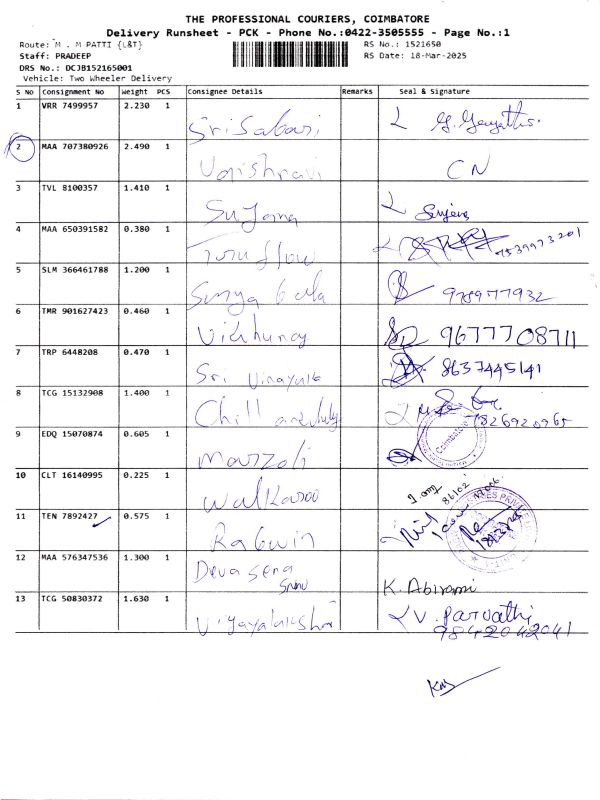 THE PROFESSIONAL COURIERS, COIMBATORE
Delivery Runsheet - PCK - Phone No.:0422-3505555 - Page No.:1
Route: M . M PATTI {L&T} RS No.: 1521650
Staff: PRADEEP RS Date: 18-Mar-2025
DRS No.: DCJB152165001
Vehicle: Two Wheeler Delivery
S No Consignment No Weight PCS Consignee Details Remarks Seal & Signature
1 VRR 7499957 2.230 1 Sri Sabari
2 MAA 707380926 2.490 1 CN
3 TVL 8100357 1.410 1 Sujana
4 MAA 650391582 0.380 1 flow 7539973201
5 SLM 366461788 1.200 1 Surya 978977932
6 TMR 901627423 0.460 1 9677708711
7 TRP 6448208 0.470 1 Sri Vinayaka 8637445141
8 TCG 15132908 1.400 1 7826920965
9 EDQ 15070874 0.605 1 Coimbatore
10 CLT 16140995 0.225 1
11 TEN 7892427 0.575 1
12 MAA 576347536 1.300 1 Devasena K. Abirami
13 TCG 50830372 1.630 1 Vijayalakshmi V. Parvathi
9842042041